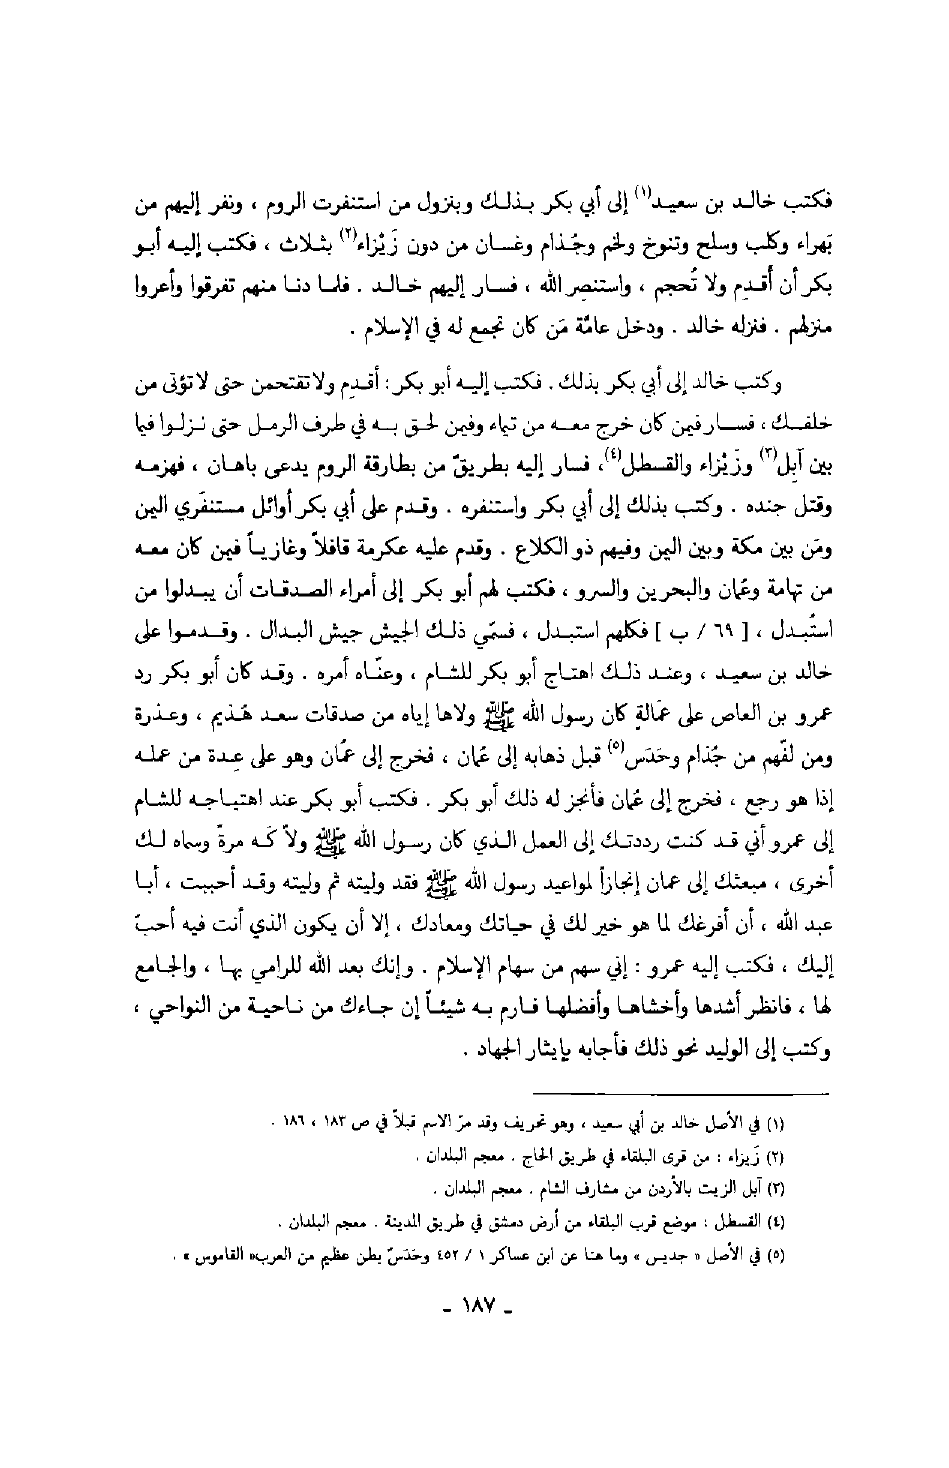 فكتب خالد بن سعيد(١) إلى أبي بكر بذلك وبنزول من استنفرت الروم ، ونفر إليهم من
بَهراء وكلب وسلح وتنوخ ولخم وجُذام وغسان من دون زَيْزاء(٢) بثلاث ، فكتب إليه أبو
بكر أن أَقدِم ولا تُحجم ، واستنصِر الله ، فسار إليهم خالد . فلما دنا منهم تفرقوا وأعروا
منزلهم . فنزله خالد . ودخل عامّة مَن كان تجمع له في الإسلام .
وكتب خالد إلى أبي بكر بذلك . فكتب إليه أبو بكر : أقدِم ولا تقتحمن حتى لا تؤتى من
خلفك ، فسار فيمن كان خرج معه من تيماء وفيمن لحق به في طرف الرمل حتى نزلوا فيما
بين آبِل(٣) وزَيْزاء والقسطل(٤)، فسار إليه بطريقٌ من بطارقة الروم يدعى باهان ، فهزمه
وقتل جنده . وكتب بذلك إلى أبي بكر واستنفره . وقدم على أبي بكر أوائل مستنفَري اليمن
ومَن بين مكة وبين اليمن وفيهم ذو الكلاع . وقدم عليه عكرمة قافلاً وغازياً فيمن كان معه
من تهامة وعُمان والبحرين والسرو ، فكتب لهم أبو بكر إلى أمراء الصدقات أن يبدلوا من
استُبدل ، [ ٦٩ / ب ] فكلهم استبدل ، فسمّي ذلك الجيش جيش البدال . وقدموا على
خالد بن سعيد ، وعند ذلك اهتاج أبو بكر للشام ، وعنّاه أمره . وقد كان أبو بكر رد
عمرو بن العاص على عُمَالةٍ كان رسول الله ﷺ ولاها إياه من صدقات سعد هُذيم ، وعذرة
ومن لفّهم من جُذام وحَدَس(٥) قبل ذهابه إلى عُمان ، فخرج إلى عُمان وهو على عِدة من عمله
إذا هو رجع ، فخرج إلى عمان فأنجز له ذلك أبو بكر . فكتب أبو بكر عند اهتياجه للشام
إلى عمرو أني قد كنت رددتك إلى العمل الذي كان رسول الله ﷺ ولاّ كه مرةً وسماه لك
أخرى ، مبعثك إلى عمان إنجازاً لمواعيد رسول الله ﷺ فقد وليته ثم وليته وقد أحببت ، أبا
عبد الله ، أن أفرغك لما هو خير لك في حياتك ومعادك ، إلا أن يكون الذي أنت فيه أحبّ
إليك ، فكتب إليه عمرو : إني سهم من سهام الإسلام . وإنك بعد الله للرامي بها ، والجامع
لها ، فانظر أشدها وأخشاها وأفضلها فارم به شيئاً إن جاءك من ناحية من النواحي ،
وكتب إلى الوليد نحو ذلك فأجابه بإيثار الجهاد .
(١) في الأصل خالد بن أبي سعيد ، وهو تحريف وقد مرّ الاسم قبلاً في ص ١٨٣ ، ١٨٦ .
(٢) زَيزاء : من قرى البلقاء في طريق الحاج . معجم البلدان .
(٣) آبل الزيت بالأردن من مشارف الشام . معجم البلدان .
(٤) القسطل : موضع قرب البلقاء من أرض دمشق في طريق المدينة . معجم البلدان .
(٥) في الأصل « جديس » وما هنا عن ابن عساكر ١ / ٤٥٢ وحَدَسٌ بطن عظيم من العرب« القاموس » .
ـ ١٨٧ ـ